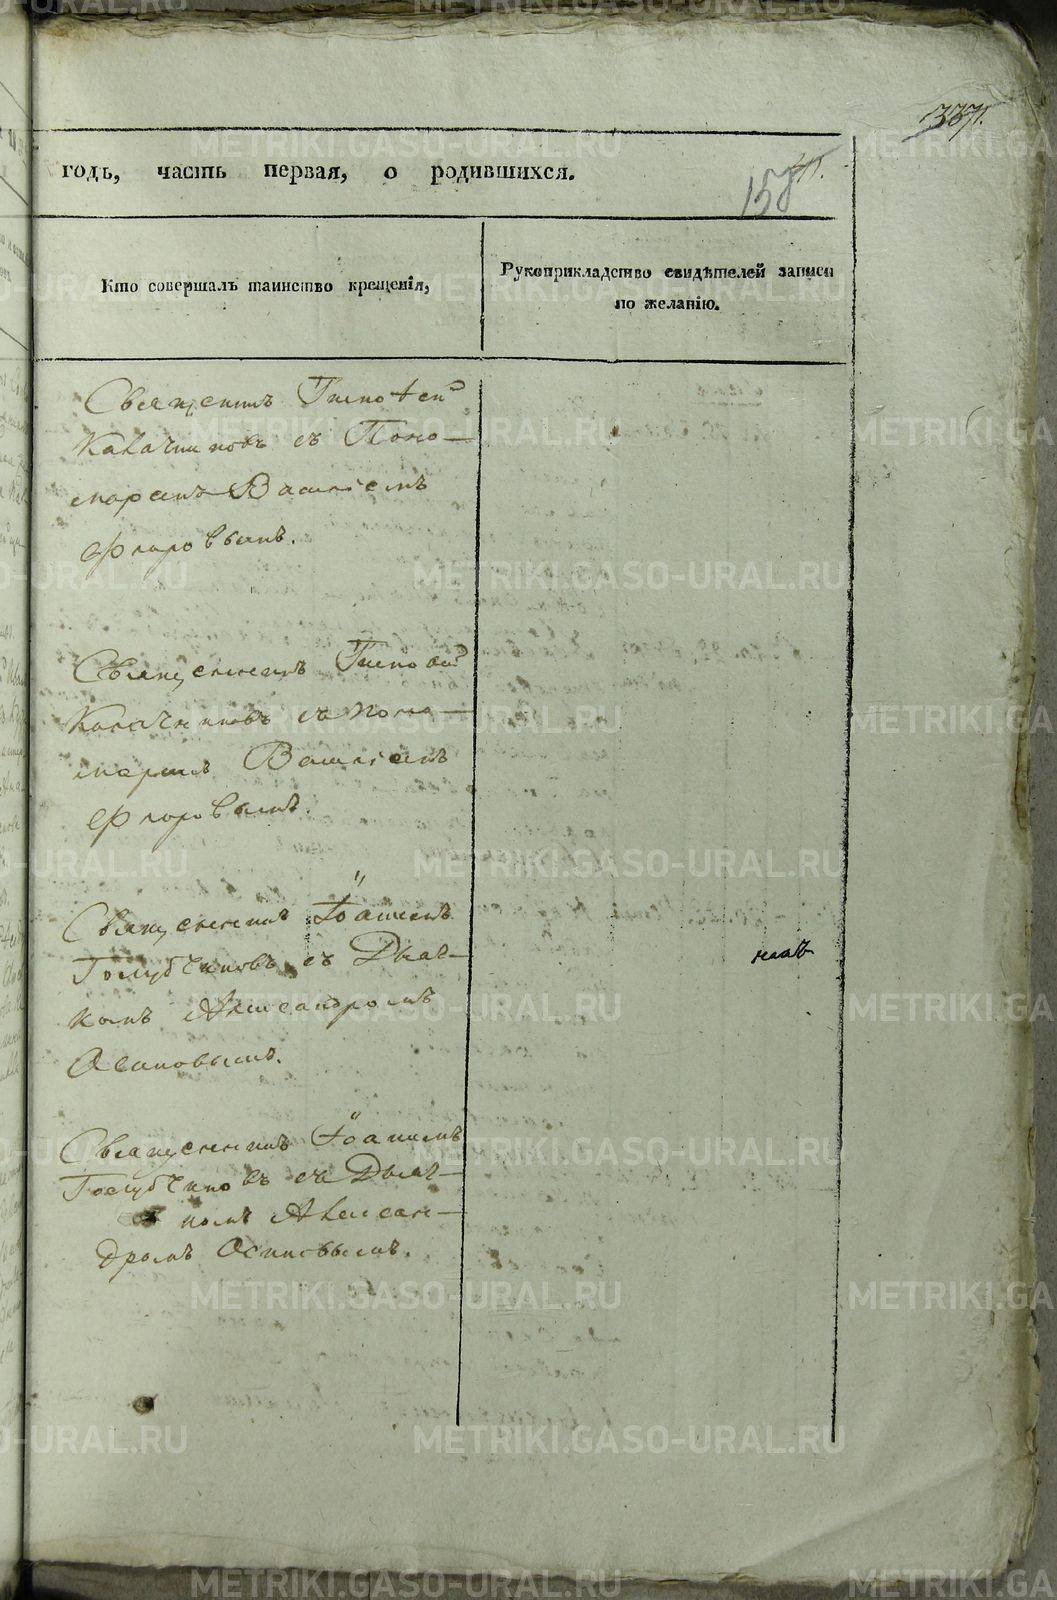 337.
годъ, часть первая, о родившихся.
158
Кто совершалъ таинство крещенія,
Рукоприкладство свидѣтелей записи
по желанію.
Священникъ Тимоѳей
Калачниковъ съ Поно-
маремъ Василіемъ
Флоровымъ.
Священникъ Тимоѳей
Калачниковъ съ Поно-
маремъ Василіемъ
Флоровымъ.
Священникъ Іоаннъ
Голубчиковъ съ Дьяч-
комъ Александромъ
Осиповымъ.
Священникъ Іоаннъ
Голубчиковъ съ Дьяч-
комъ Алексан-
дромъ Осиповымъ.
METRIKI.GASO-URAL.RU